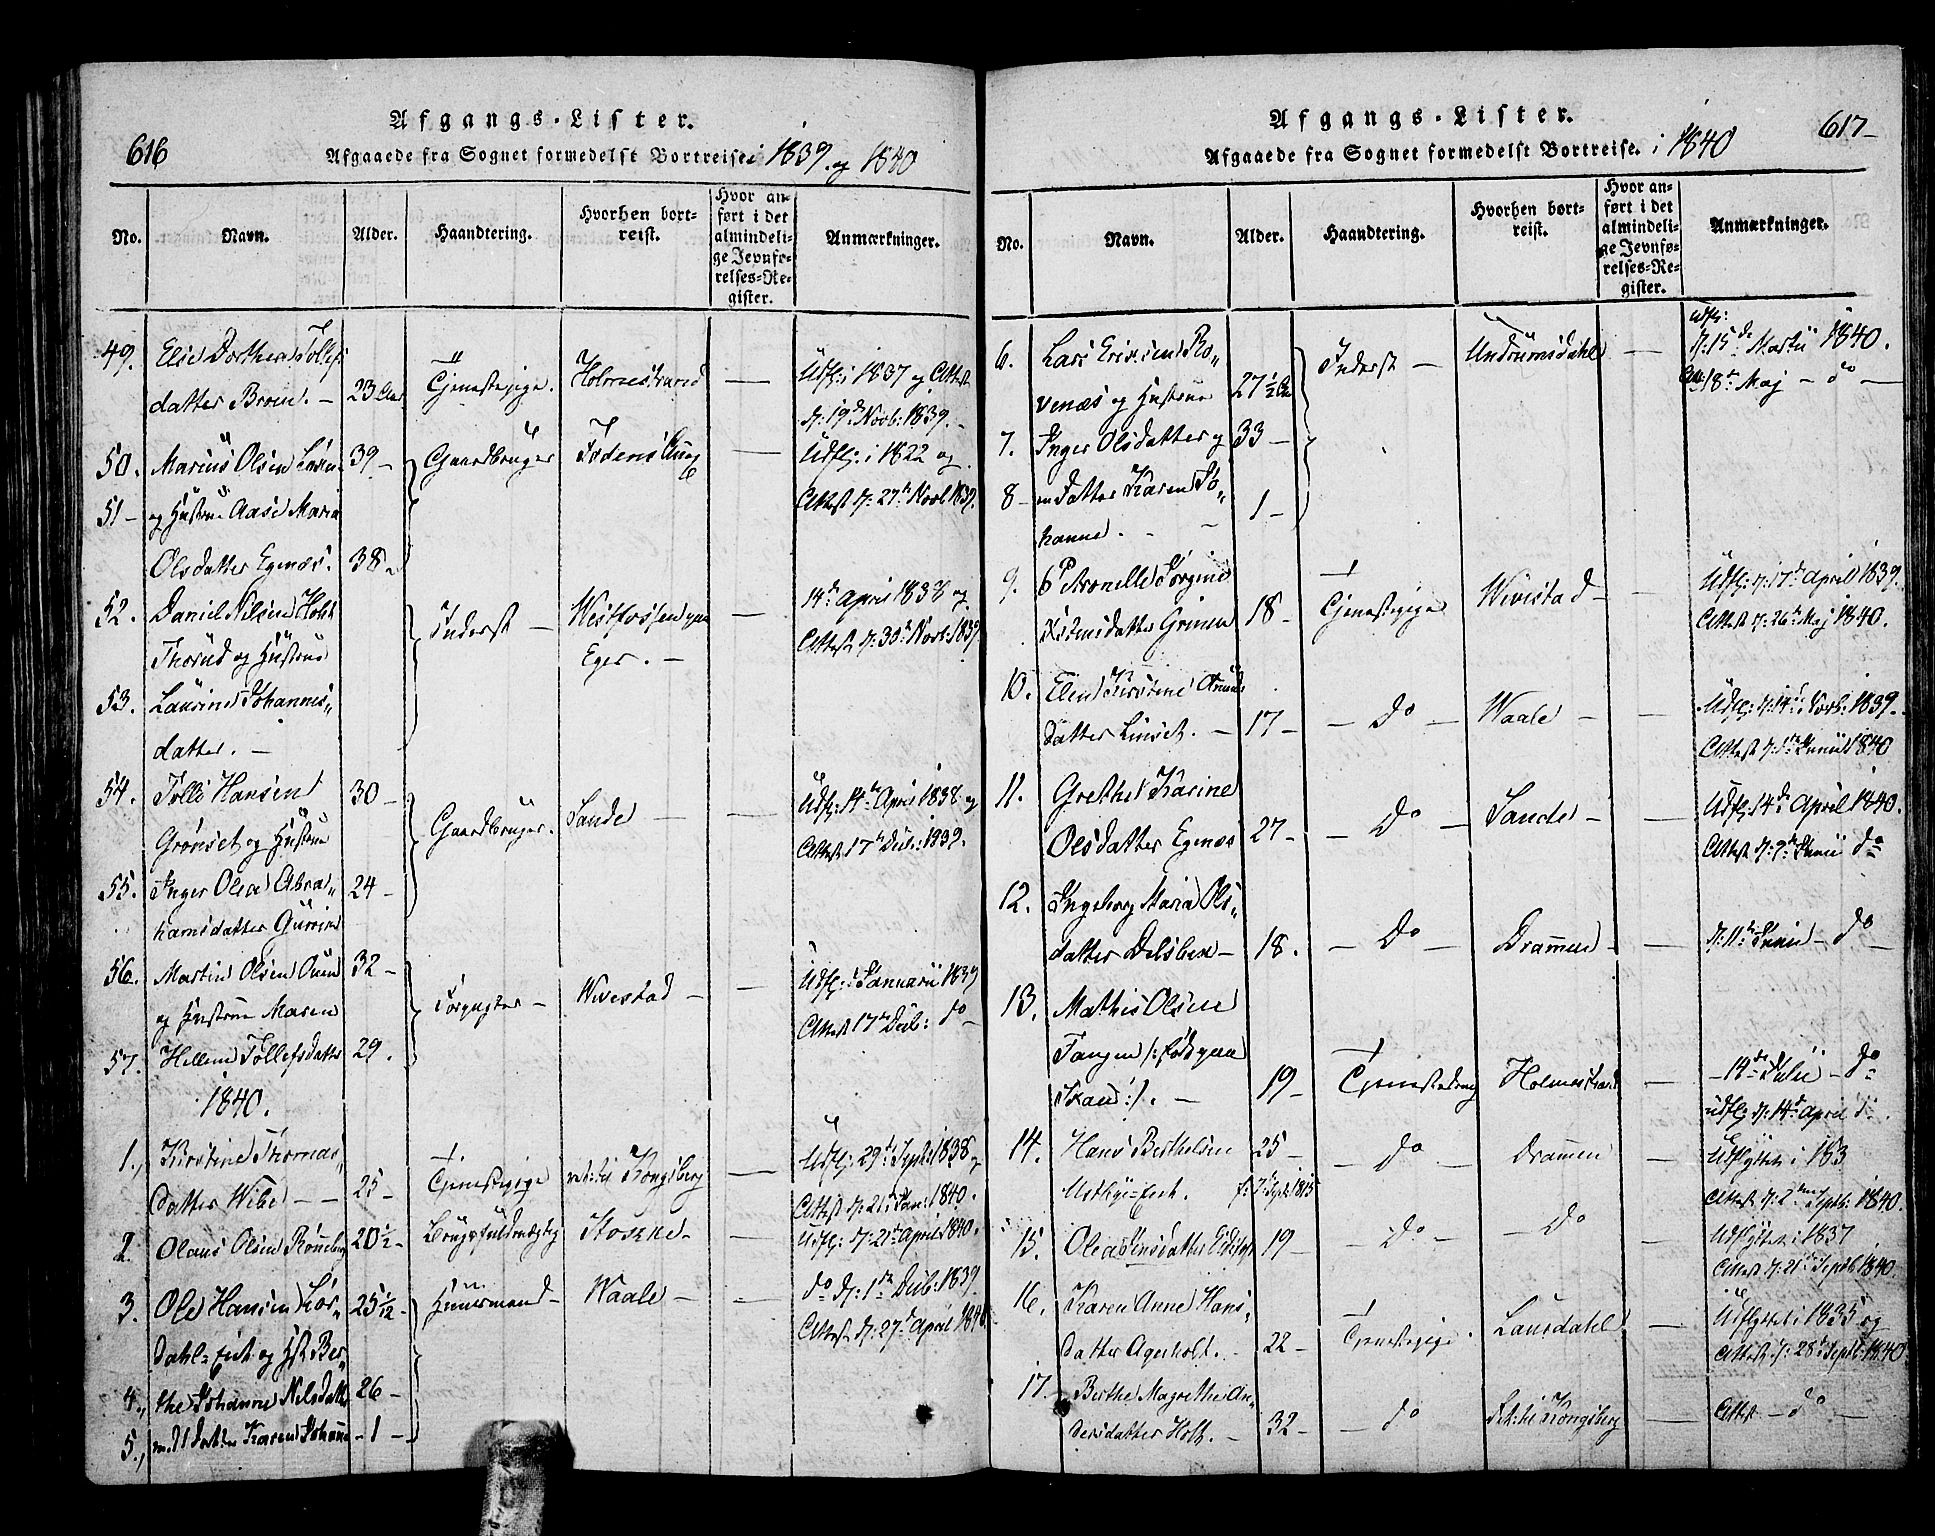 616
Afgangs-Lister.
Afgaaede fra Sognet formedelst Bortreise i 1839. og 1840
No.
Navn.
Alder.
Haandtering.
Hvorhen bort-
reist.
Hvor an-
ført i det
almindeli-
ge Jevnfø-
relses-Re-
gister.
Anmærkninger.
49. Else Dorthea Tollefs
datter Broen. - 23 Aar
Tjenestepige. Holmestrand —
Udfl: i 1837 og Attest
d: 19de Novb: 1839.
50. Marius Olsen 39 -
Gaardbruger —
Udfl: i 1822 og
Attest d: 27de Novb 1839.
51 - og Hustrue Aase Maria
Olsdatter Egenæs. 38 -
52. Daniel Nilsen Holt
Thorud og Hustrue
Inderst - Westfossen paa
Eger. - —
14de April 1838 og
Attest d: 30te Novb: 1839
53. Laurine Johannis„
datter. -
54. Tolle Hansen 30 -
Grønset og Hustrue
Gaardbruger. Sande - —
Udfl: 14de April 1838 og
Attest 17de Decb: 1839.
55. Inger Olea Abra„ 24 -
hamsdatter
56. Martin Olsen 32 -
og Hustrue Maren
Wivestad - —
Udfl: i Januarii 1839
Attest 17de Decb: do -
57. Hellene Tollefsdatter 29.
1840.
1., Kirstine Thomas„
datter Wibe - - 25 -
Tjenestepige Kongsberg —
Udfl: 29de Sept: 1838 og
Attest d: 21de Jan: 1840.
2. Olaus Olsen Rønneberg 20 1/2 -
Stokke - —
Udfl: d: 21de April 1840.
3. Ole Hansen 25 1/12 -
Huusmand - Waale - —
do d: 1ste Decb: 1839
Attest d: 27de April 1840
dahl-Eiet og Hst Ber„
4., the Johanne Nilsdatter 26 -
5., med datter Karen Johanne - 1 -
Afgangs-Lister.
617-
Afgaaede fra Sognet formedelst Bortreise. i 1840
No.
Navn.
Alder.
Haandtering.
Hvorhen bort-
reist.
Hvor an-
ført i det
almindeli-
ge Jevnfø-
relses-Re-
gister.
Anmærkninger.
6. Lars Ericksen Ro„
venæs og Hustrue 27 1/2 Aar
Inderst Undrumsdahl —
Udfl:
d: 15de Martii 1840.
Att: 18de Maj - do —
7. Inger Olsdatter og 33 -
8 - m datter Karen Jo„ 1 -
hanne. -
9. Petronelle Jørgine
datter Grimen 18 -
Tjenestepige Wivestad -
Udfl: d: 17de April 1839.
Attest d: 26de Maj 1840.
10. Elen Kirstine Amunds
datter Linset. - 17 -
- do - Waale - —
Udfl: d: 14de Novb: 1839.
Attest d: Junii 1840
11. Grethe Karine
Olsdatter Egenæs 27 -
- do - Sande - —
Udfl: 14de April 1840.
Attest d: Junii do
12. Ingeborg Maria Ols„
datter Delebek - 18.
- do - Drammen - —
d: 11te Junii - do
13. Mathis Olsen
Tangen /: født paa
:/. - 19 -
Tjenestedreng Holmestrand —
- 14de Julii - do
udfl: d: 14de April do.
14. Hans Berthelsen 25 -
Eiet. f: Sept: 1815
- do - Drammen —
Udflyttet i 183
Attest d: Septb: 1840.
15. Olea 19 -
- do - - do
Udflyttet i 1837
Attest d: 21de Septb 1840.
16. Karen Anne Hans„
datter Agerholt. - 22 -
Tjenestepige. Lausdahl —
Udflyttet i 1835 og
Attest d: 28de Septb: 1840.
17. Berthe Magrethe An„
dersdatter Holt. - 32 -
- do Kongsberg —
Attest - do —